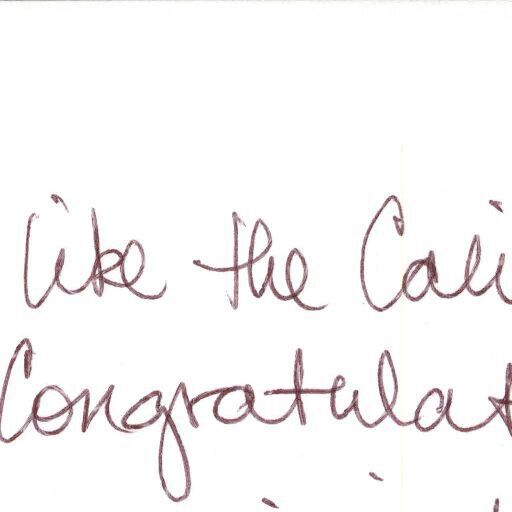 like the Cali
Congratulat